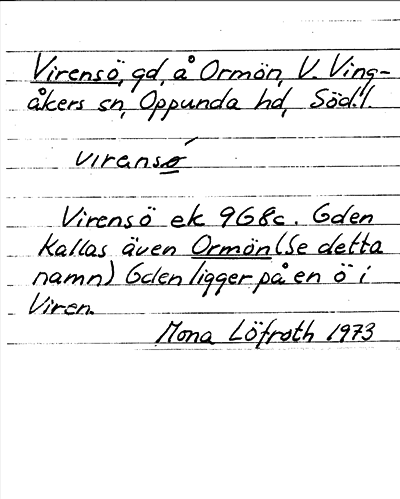 Virensö, gd, å Ormön, V. Ving-
åkers sn, Oppunda hd, Södl.
viransø´
Virensö ek 9G8c. Gden
kallas även Ormön (Se detta
namn) Gden ligger på en ö i
Viren.
Mona Löfroth 1973